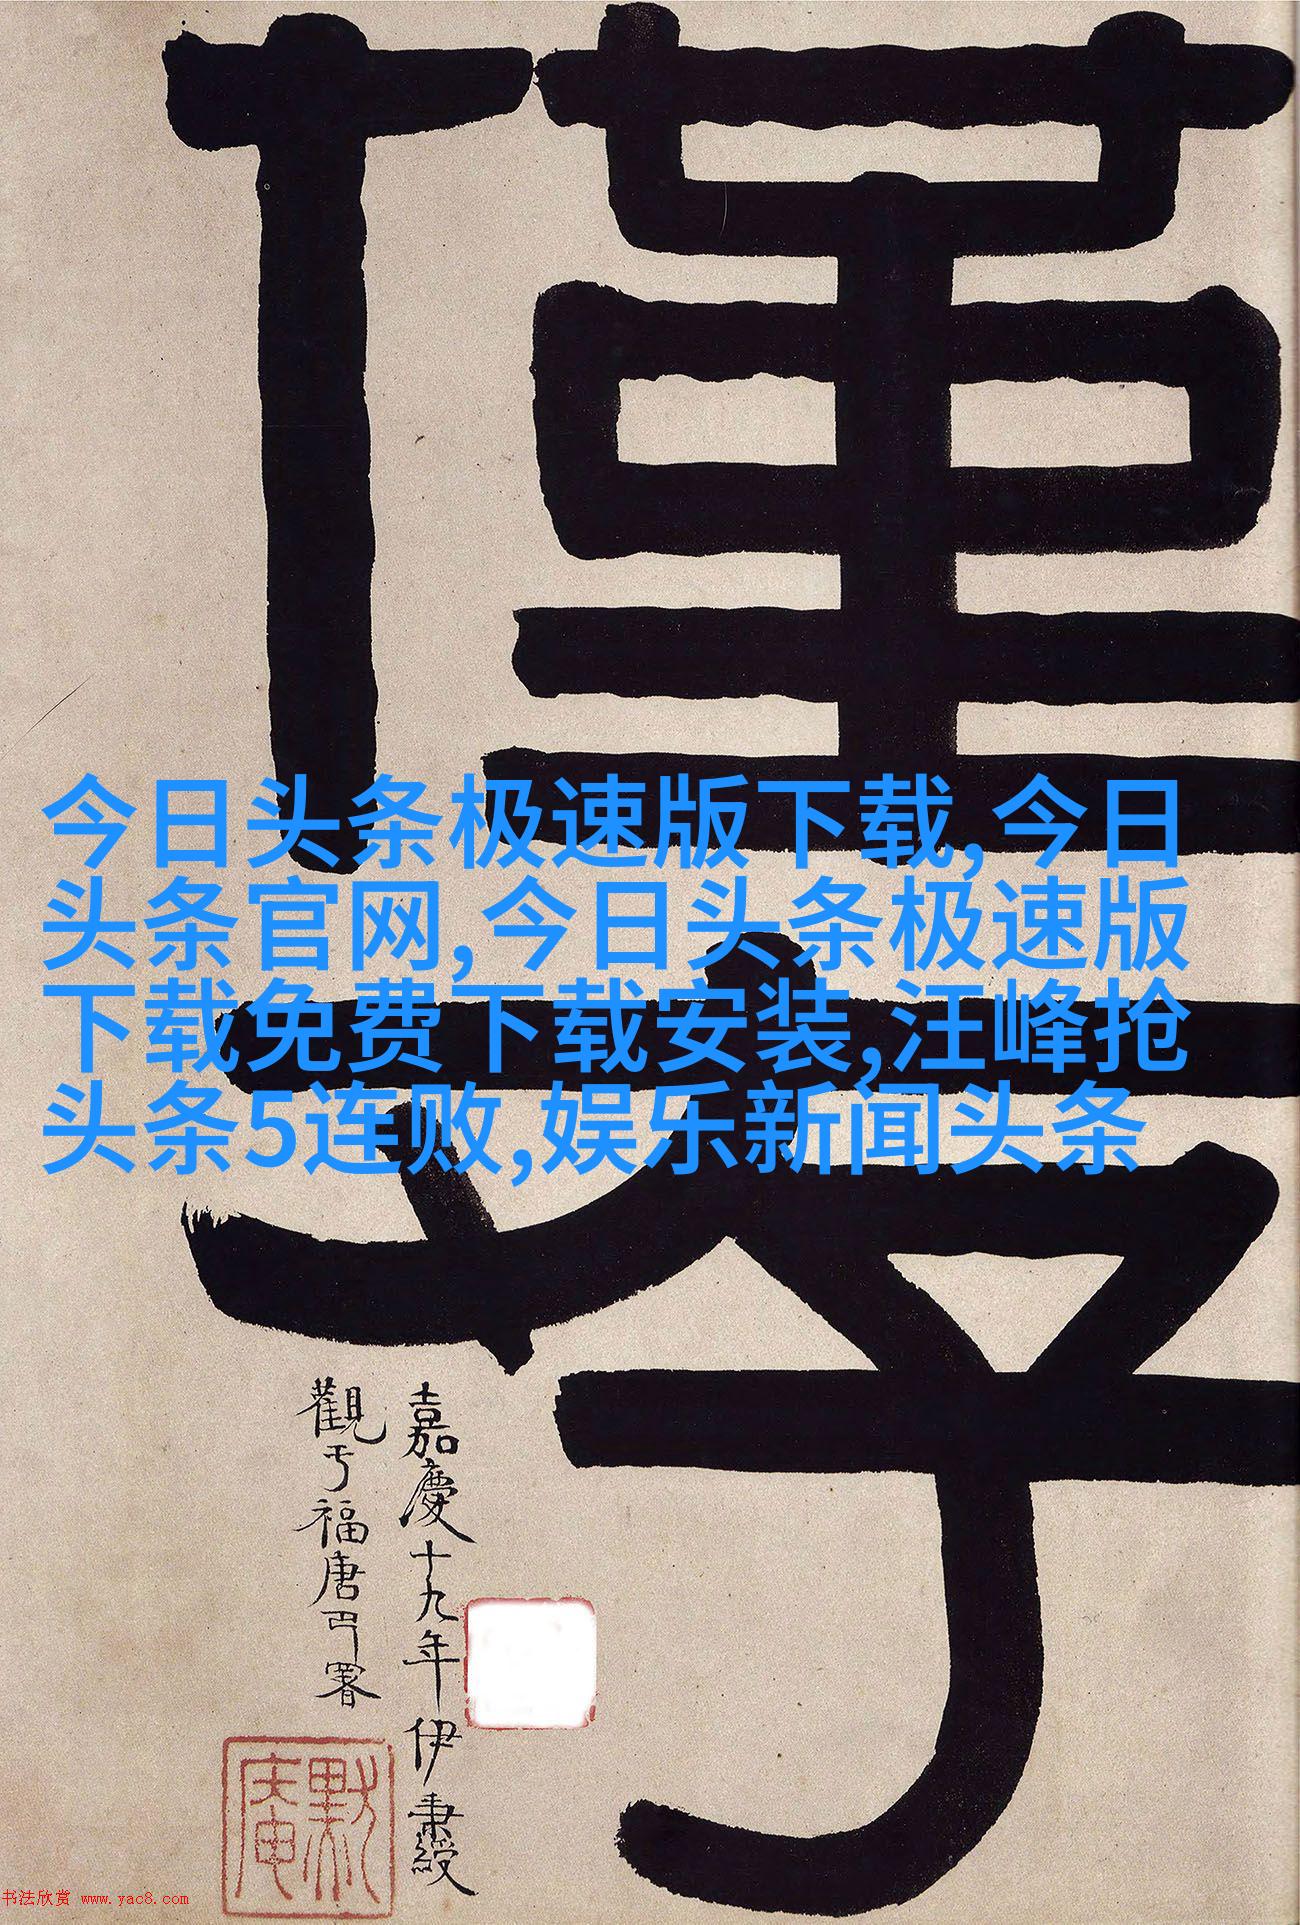 今日头条极速版下载, 今日
头条官网,今日头条极速版
下载免费下载安装,汪峰抢
头条5连败,娱乐新闻头条
嘉慶十九年伊秉綬
觀于福唐
默庵
书法欣赏 www.yac8.com